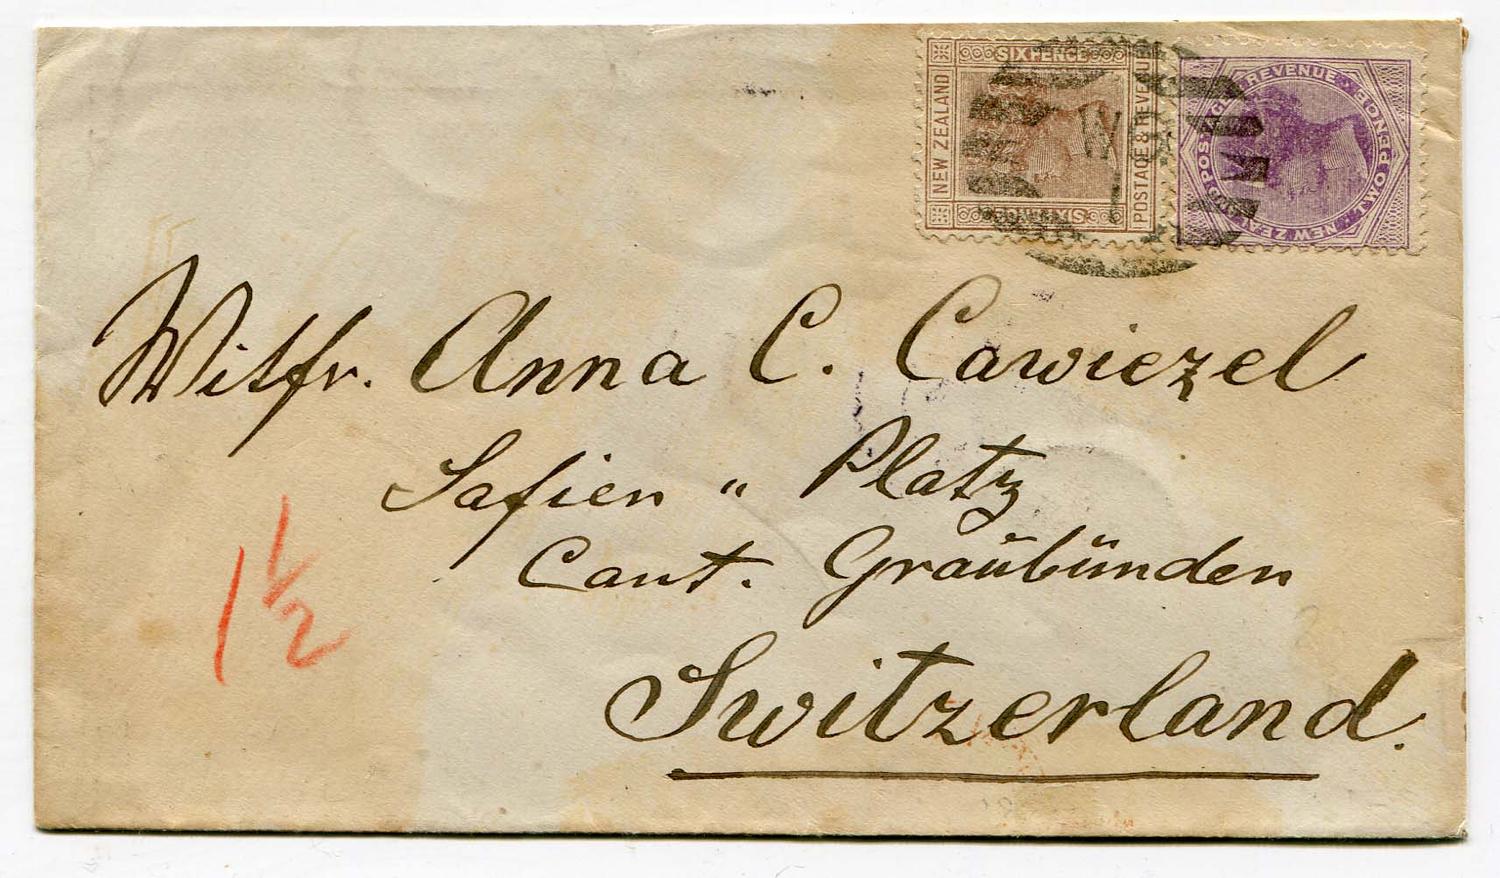 SIXPENCE
NEW ZEALAND
POSTAGE & REVENUE
SIXPENCE
POSTAGE & REVENUE
TWO PENCE
NEW ZEALAND
Witfr. Anna C. Cawiezel
Safien " Platz
Cant. Graübünden
1 1/2
Switzerland.